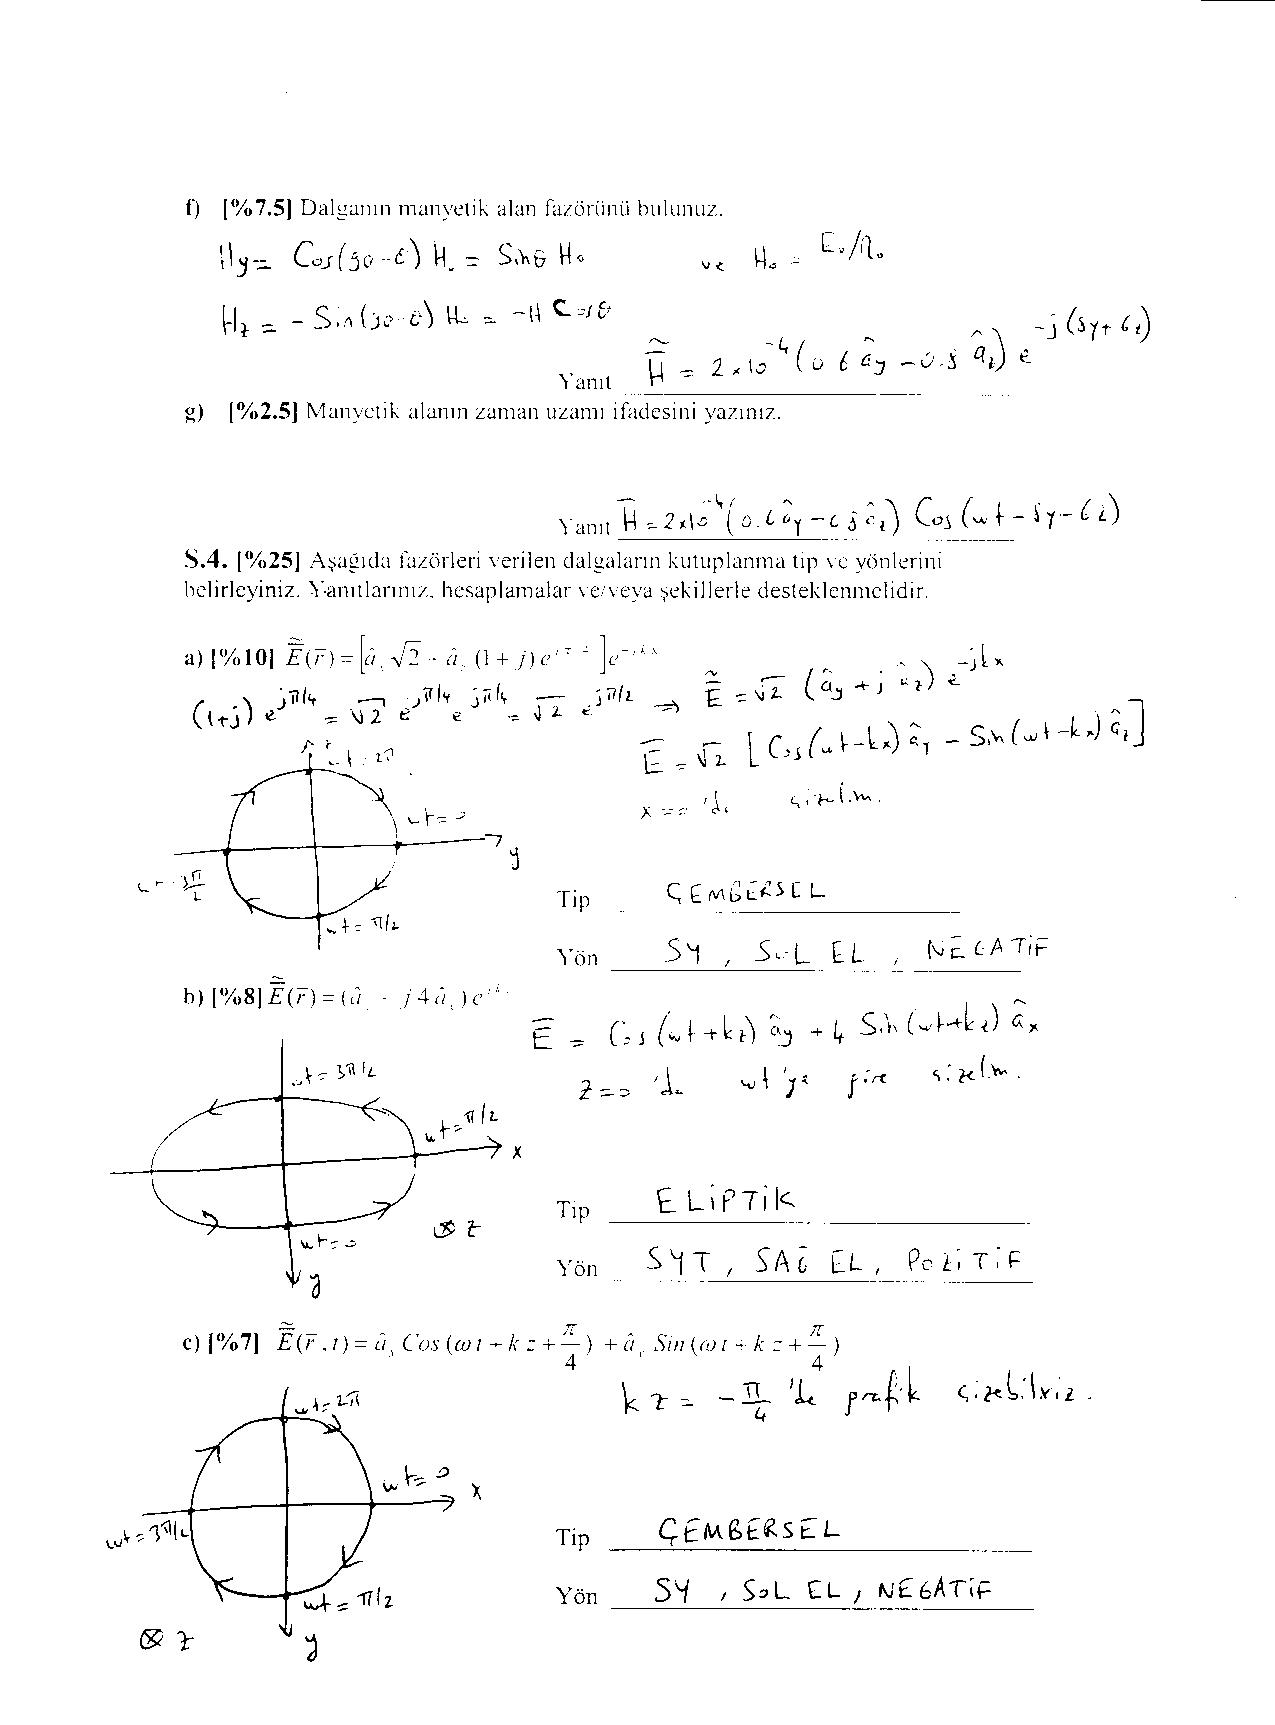 f) [%7.5] Dalganın manyetik alan fazörünü bulunuz.
Hy = Cos(90-θ) H₀ = Sinθ H₀ ve H₀ = E₀/η₀
Hz = - Sin(90-θ) H₀ = -H Cosθ
Yanıt H = 2x10⁻⁴ (0.6 ây - 0.8 âz) e^-j(8y+6z)
g) [%2.5] Manyetik alanın zaman uzamı ifadesini yazınız.
Yanıt H = 2x10⁻⁴ (0.6 ây - 0.8 âz) Cos(wt - 8y - 6z)
S.4. [%25] Aşağıda fazörleri verilen dalgaların kutuplanma tip ve yönlerini
belirleyiniz. Yanıtlarınız, hesaplamalar ve/veya şekillerle desteklenmelidir.
a) [%10] E(r) =
(1+j) e^jπ/4 = √2 e^jπ/4 e^jπ/4 = √2 e^jπ/2 → E = √2 (ây + j âz) e^-jkx
E = √2 [Cos(wt-kx) ây - Sin(wt-kx) âz]
x=0 'da çizelim.
wt=2π
wt=0
y
wt=3π/2
wt=π/2
Tip ÇEMBERSEL
Yön SY, SOL EL, NEGATİF
b) [%8] E(r) =
E = Cos(wt+kz) ây + 4 Sin(wt+kz) âx
z=0 'da wt'ye göre çizelim.
wt=3π/2
wt=π/2
x
⊗ z
wt=0
y
Tip ELİPTİK
Yön SYT, SAĞ EL, POZİTİF
c) [%7] E(r,t) = Cos(ωt + kz + π/4) + Sin(ωt + kz + π/4)
kz = -π/4 'de grafik çizebiliriz.
wt=2π
wt=0
x
wt=3π/2
wt=π/2
⊗ z
y
Tip ÇEMBERSEL
Yön SY, SOL EL, NEGATİF